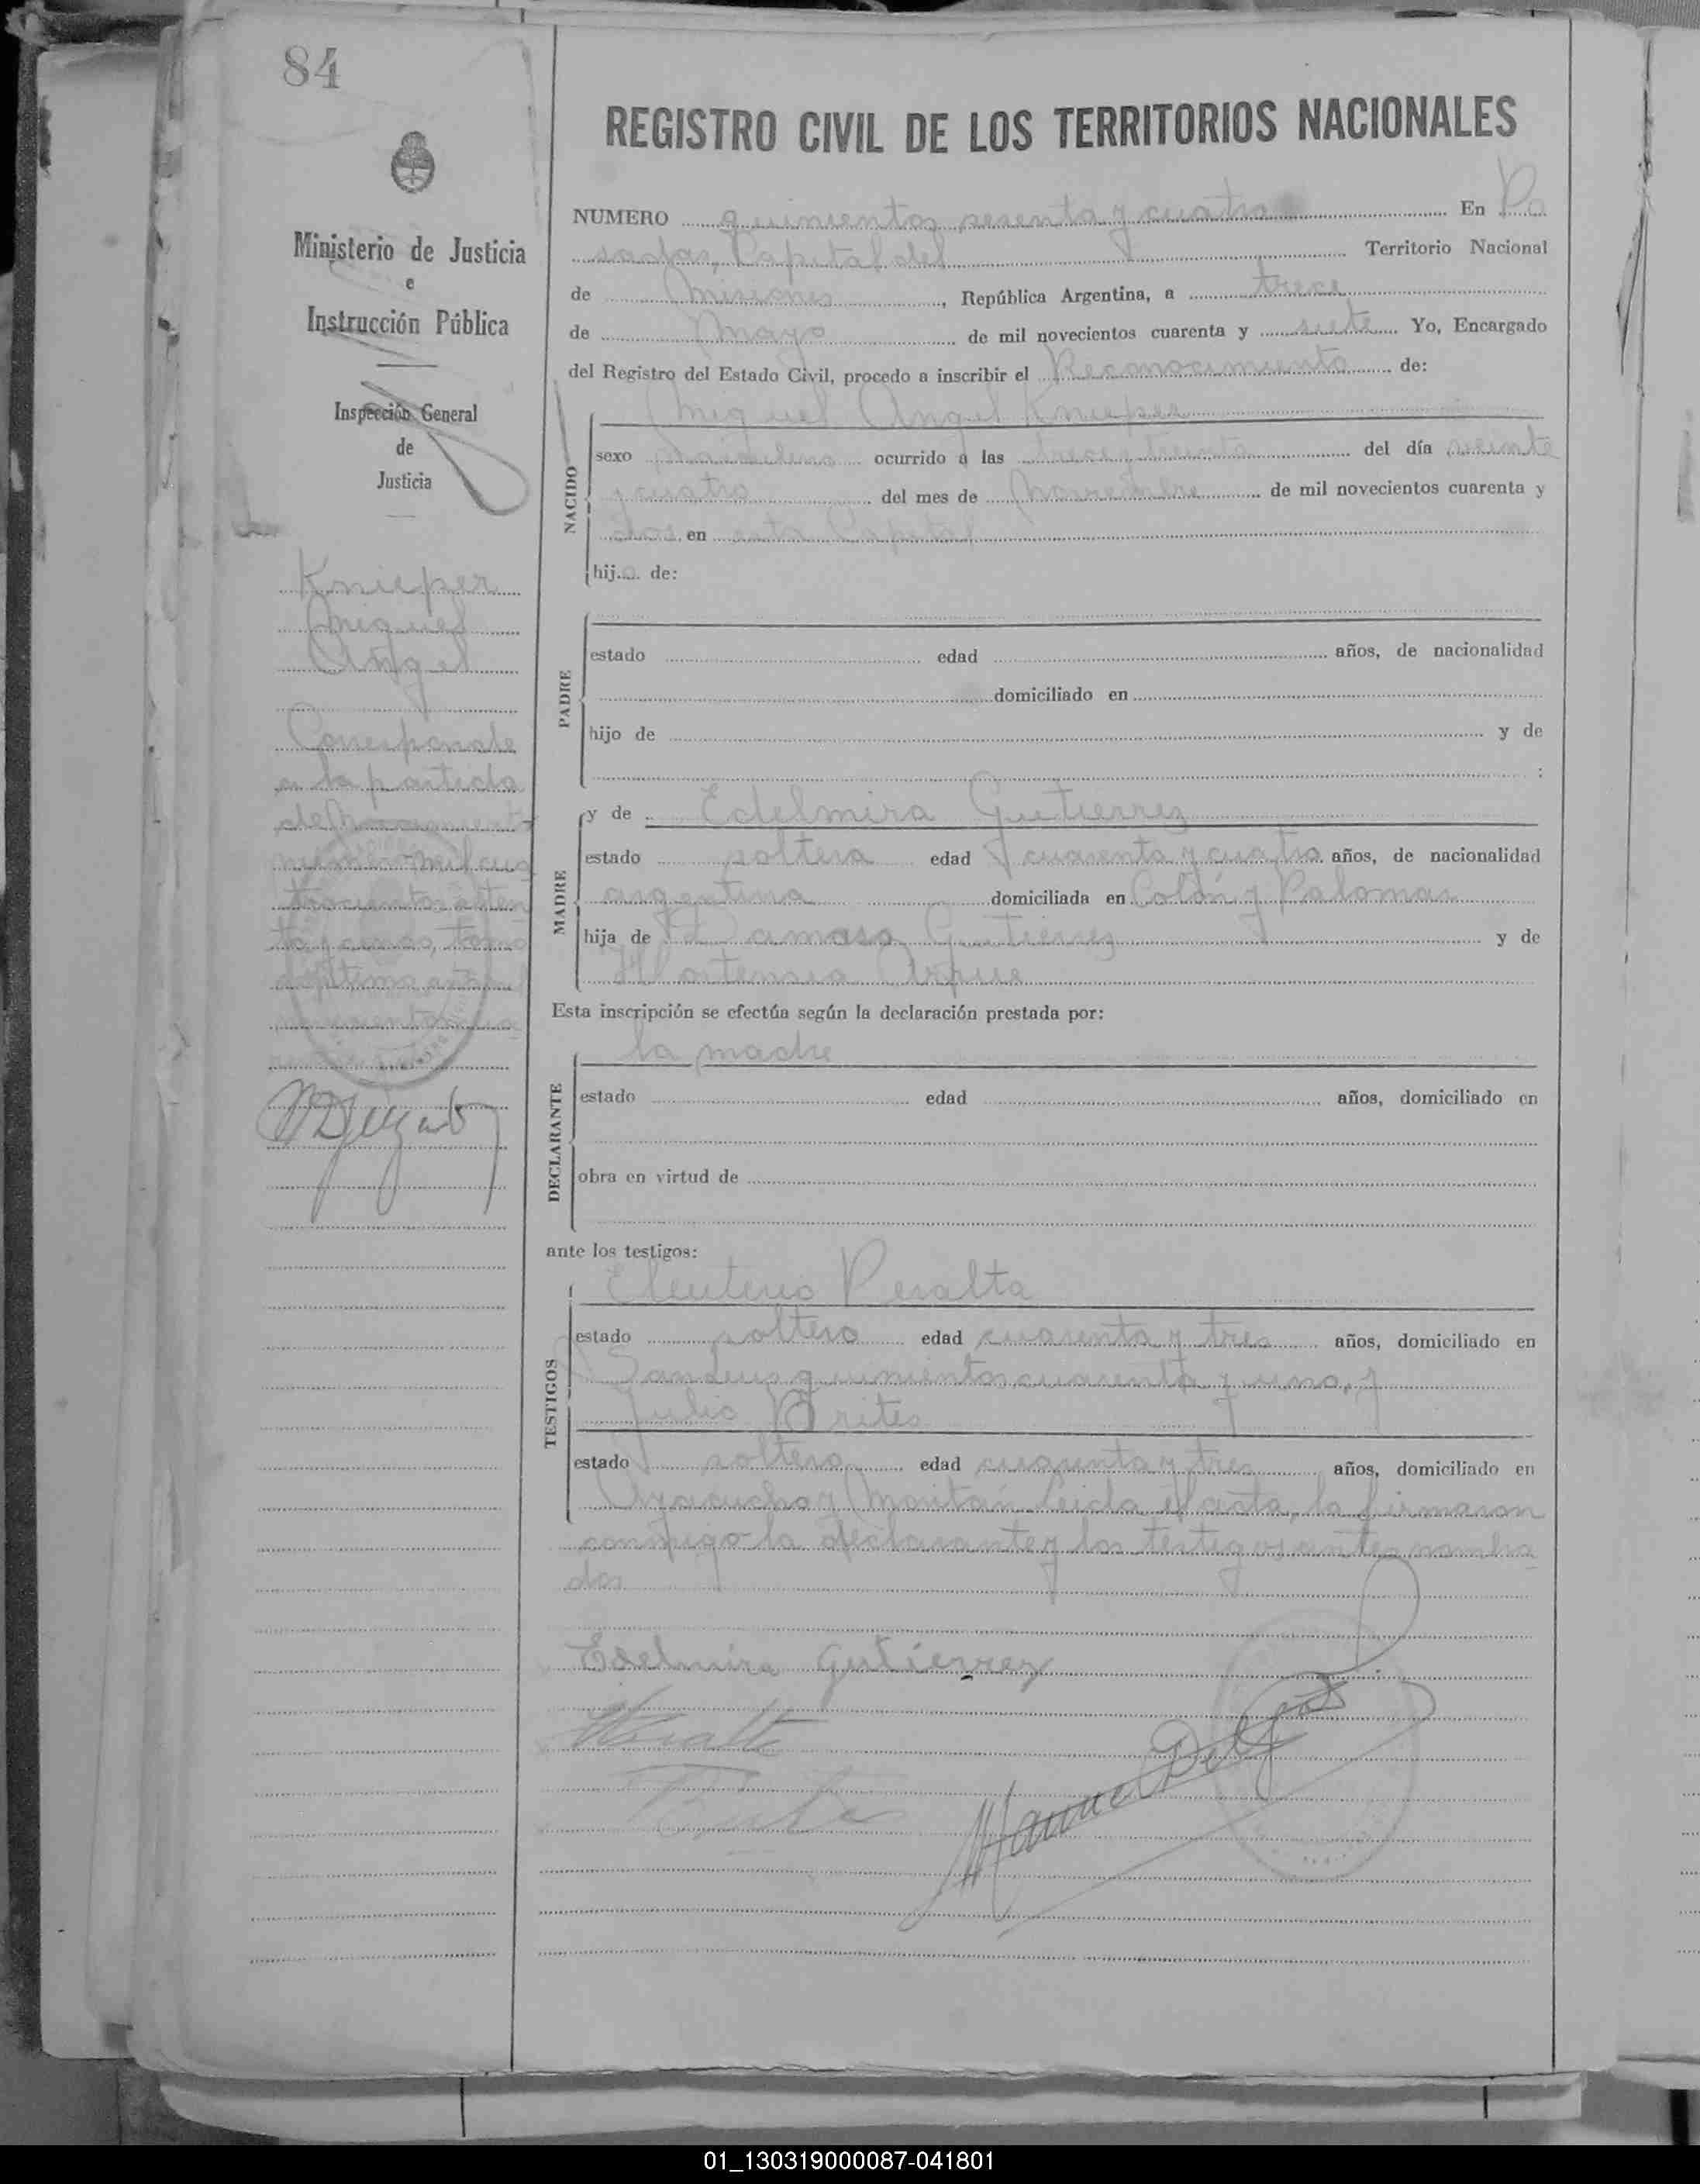 84
REGISTRO CIVIL DE LOS TERRITORIOS NACIONALES
Ministerio de Justicia
e
Instrucción Pública
Inspección General
de
Justicia
Knieper
Miguel
Angel
Corresponde
a la partida
de Nacimiento
número mil cua
trocientos ochen
ta y cinco, tomo
séptimo año
novecientos
NUMERO quinientos sesenta y cuatro En Po
sadas, Capital del Territorio Nacional
de Misiones, República Argentina, a trece
de Mayo de mil novecientos cuarenta y siete Yo, Encargado
del Registro del Estado Civil, procedo a inscribir el Reconocimiento de:
Miguel Angel Knieper
NACIDO
sexo masculino ocurrido a las trece y treinta del día veinte
y cuatro del mes de Noviembre de mil novecientos cuarenta y
dos en esta Capital
hijo de:
PADRE
estado edad años, de nacionalidad
domiciliado en
hijo de y de
:
MADRE
y de Edelmira Gutierrez
estado soltera edad cuarenta y cuatro años, de nacionalidad
argentina domiciliada en Colón y Palomar
hija de Damaso Gutierrez y de
Hortensia
Esta inscripción se efectúa según la declaración prestada por:
la madre
DECLARANTE
estado edad años, domiciliado en
obra en virtud de
ante los testigos:
Eleuterio Peralta
TESTIGOS
estado soltero edad cuarenta y tres años, domiciliado en
Sandeus quinientos cuarenta y uno, y
Julio Brites
estado soltero edad cuarenta y tres años, domiciliado en
Ayacucho y Moritán Leida el acta, la firmaron
conmigo la declarante y los testigos antes nombra
dos
Edelmira Gutierrez
Peralta
Brites
Manuel Delgado
01_130319000087-041801